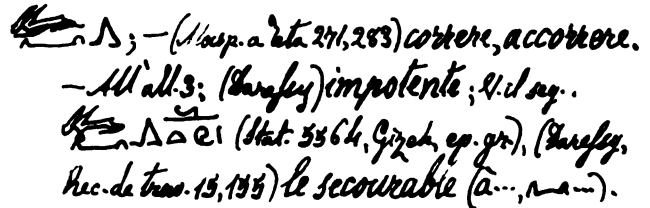 ; — (Masp. a Zeta 271, 283) correre, accorrere.
— All'all. 3; (Daressy) impotente; V. il seg..
(Stat. 5564, Gizeh, ep. gr.), (Daressy,
Rec. de trav. 15, 155) le secourable (à..., ...).